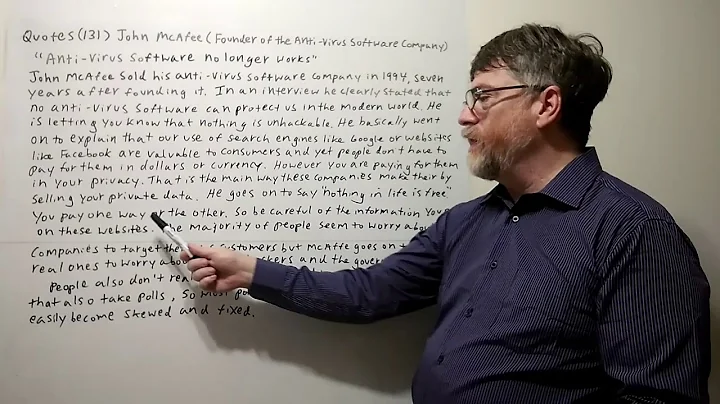 Quotes (131) John McAfee (Founder of the Anti-Virus Software Company)
"Anti-Virus Software no longer works"
John McAfee sold his anti-virus software company in 1994, seven
years after founding it. In an interview he clearly stated that
no anti-virus software can protect us in the modern world. He
is letting you know that nothing is unhackable. He basically went
on to explain that our use of search engines like Google or websites
like Facebook are valuable to consumers and yet people don't have to
pay for them in dollars or currency. However you are paying for them
in your privacy. That is the main way these companies make their by
selling your private data. He goes on to say "nothing in life is free"
You pay one way or the other. So be careful of the information you
on these websites. The majority of people seem to worry
Companies to target customers but McAffe goes on
real ones to worry and the
People also don't
that also take polls, so most
easily become skewed and fixed.